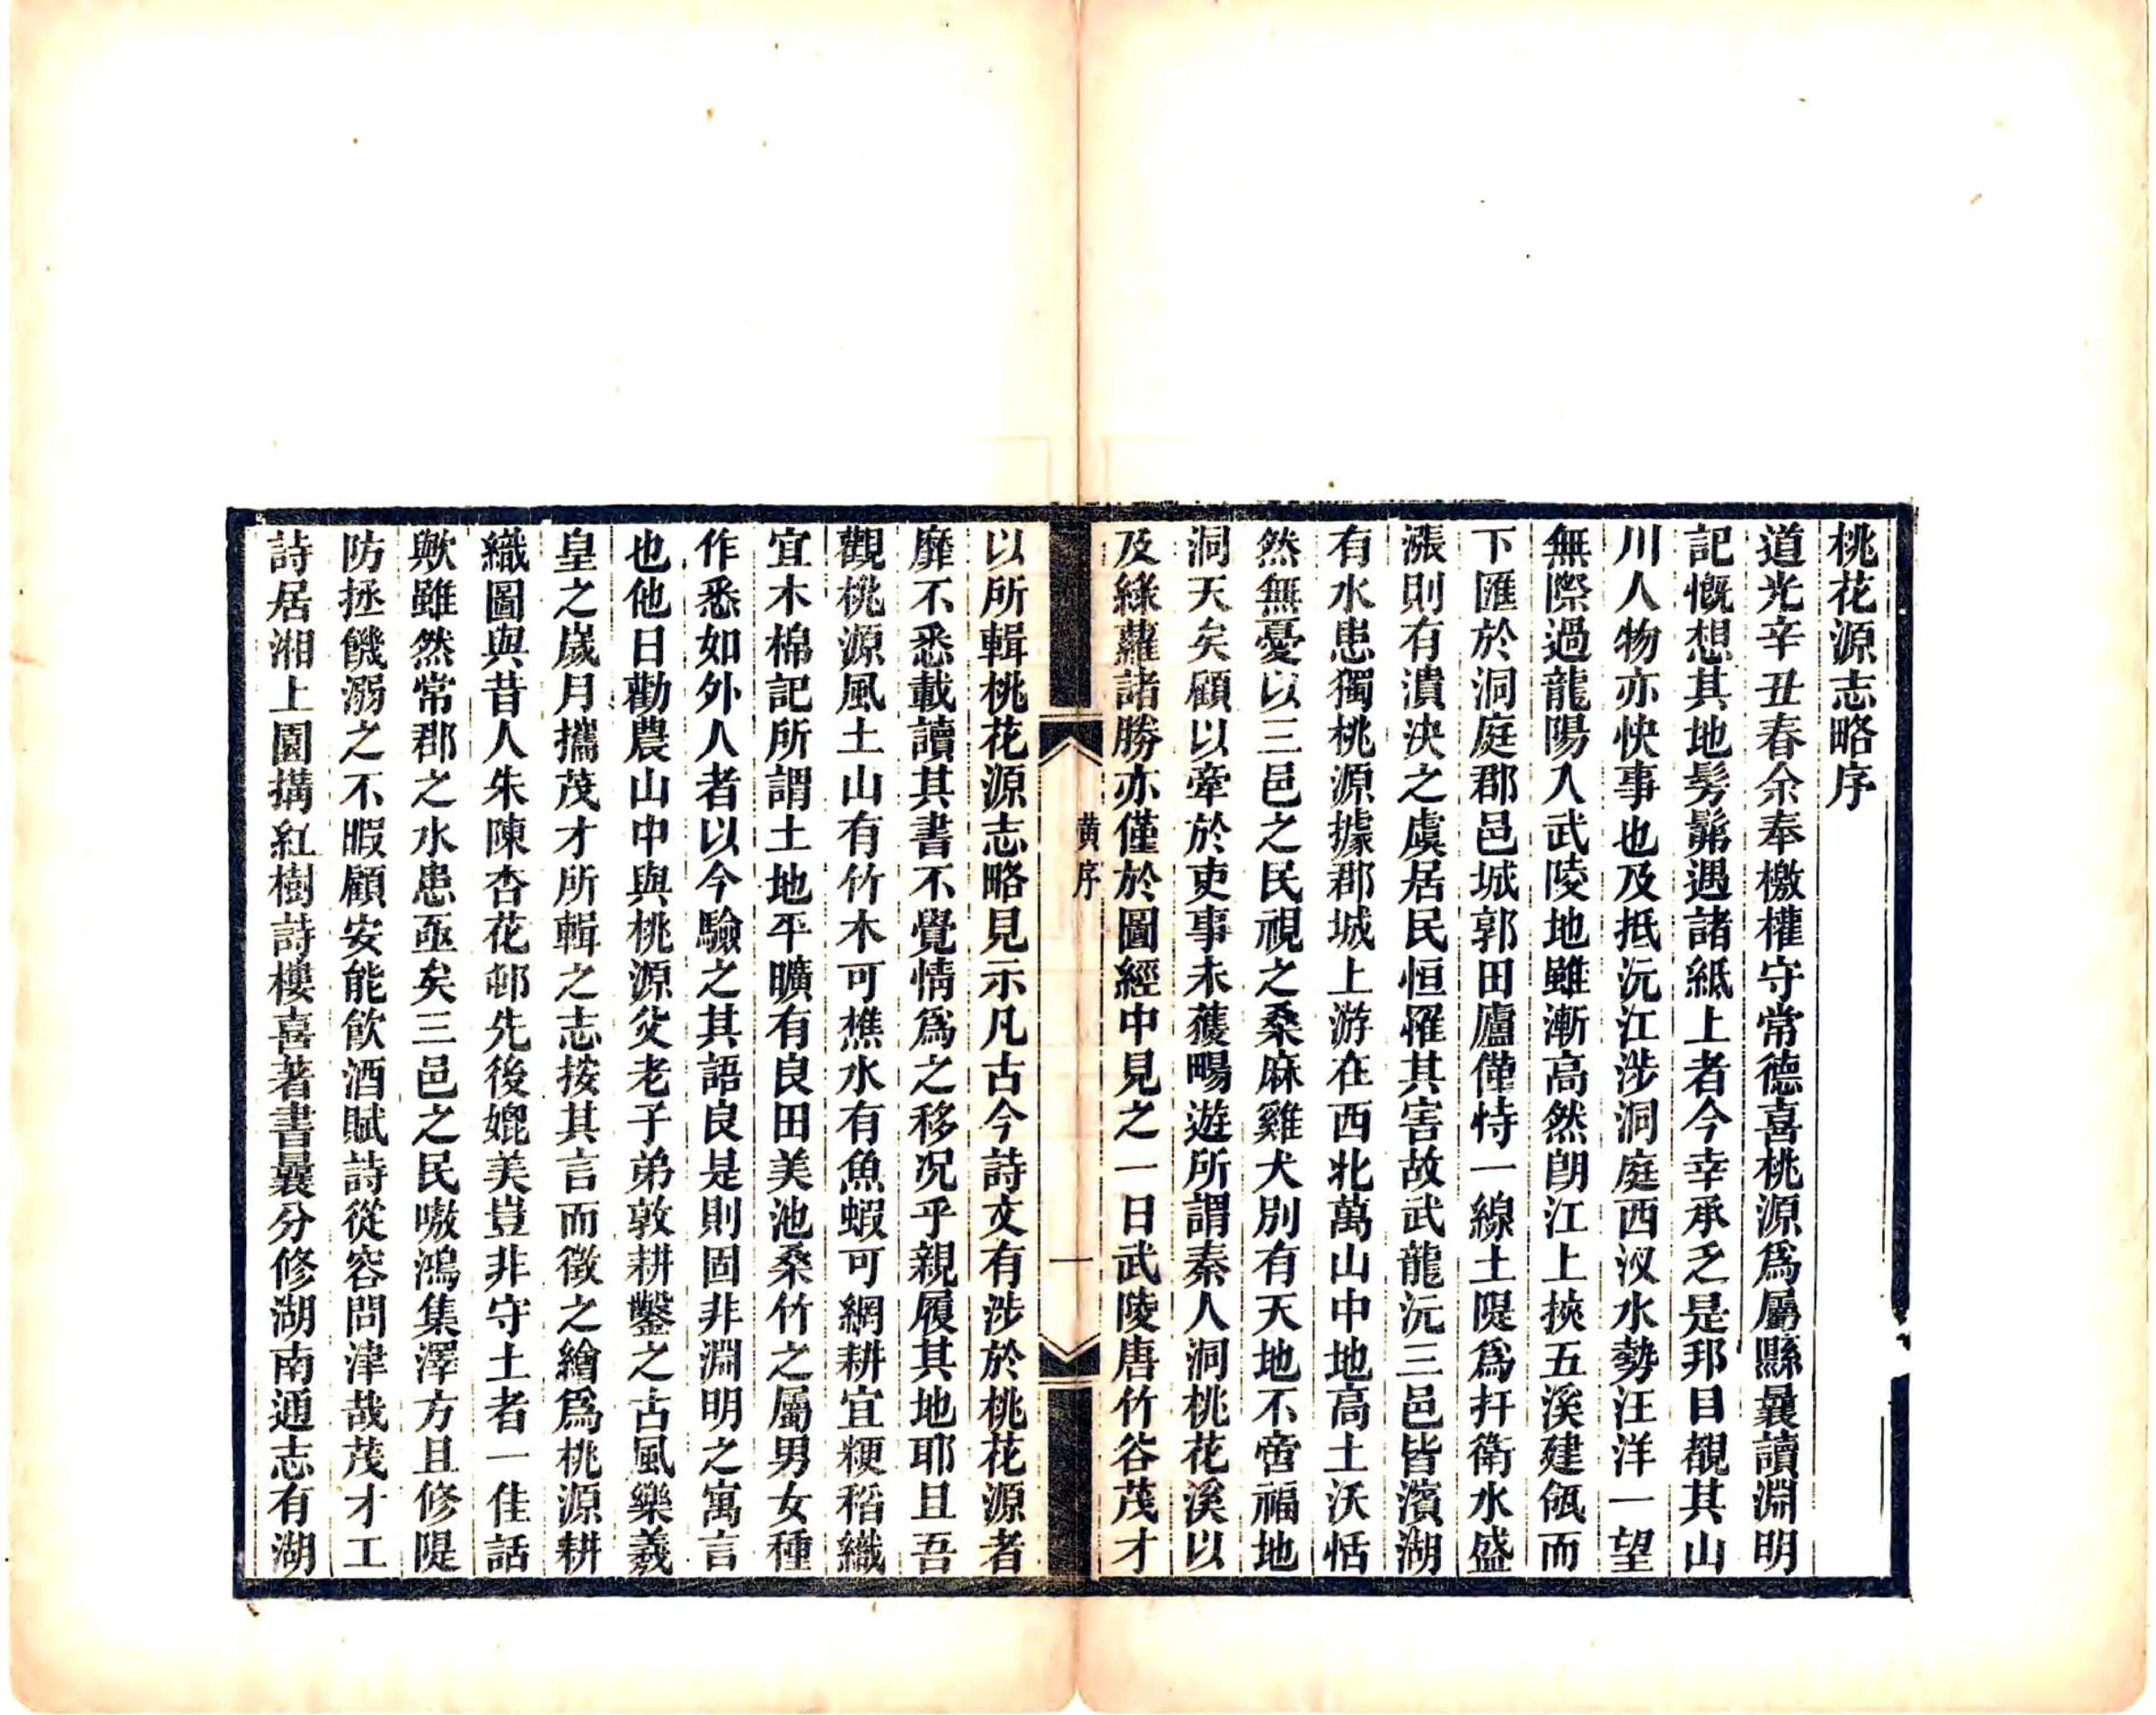 桃花源志略序
道光辛丑春余奉檄權守常德喜桃源爲屬縣曩讀淵明
記慨想其地髣髴遇諸紙上者今幸承乏是邦目覩其山
川人物亦快事也及抵沅江涉洞庭西汊水勢汪洋一望
無際過龍陽入武陵地雖漸高然朗江上挾五溪建瓴而
下匯於洞庭郡邑城郭田廬僅恃一線土隄爲扞衛水盛
漲則有潰決之虞居民恒罹其害故武龍沅三邑皆濱湖
有水患獨桃源據郡城上游在西北萬山中地高土沃恬
然無憂以三邑之民視之桑麻雞犬別有天地不啻福地
洞天矣顧以牽於吏事未獲暢遊所謂秦人洞桃花溪以
及綠蘿諸勝亦僅於圖經中見之一日武陵唐竹谷茂才
黃序
一
以所輯桃花源志略見示凡古今詩文有涉於桃花源者
靡不悉載讀其書不覺情爲之移况乎親履其地耶且吾
觀桃源風土山有竹木可樵水有魚蝦可網耕宜粳稻織
宜木棉記所謂土地平曠有良田美池桑竹之屬男女種
作悉如外人者以今驗之其語良是則固非淵明之寓言
也他日勸農山中與桃源父老子弟敦耕鑿之古風樂羲
皇之歲月攜茂才所輯之志按其言而徵之繪爲桃源耕
織圖與昔人朱陳杏花邨先後媲美豈非守土者一佳話
歟雖然常郡之水患亟矣三邑之民嗷鴻集澤方且修隄
防拯饑溺之不暇顧安能飲酒賦詩從容問津哉茂才工
詩居湘上園搆紅樹詩樓喜著書曩分修湖南通志有湖